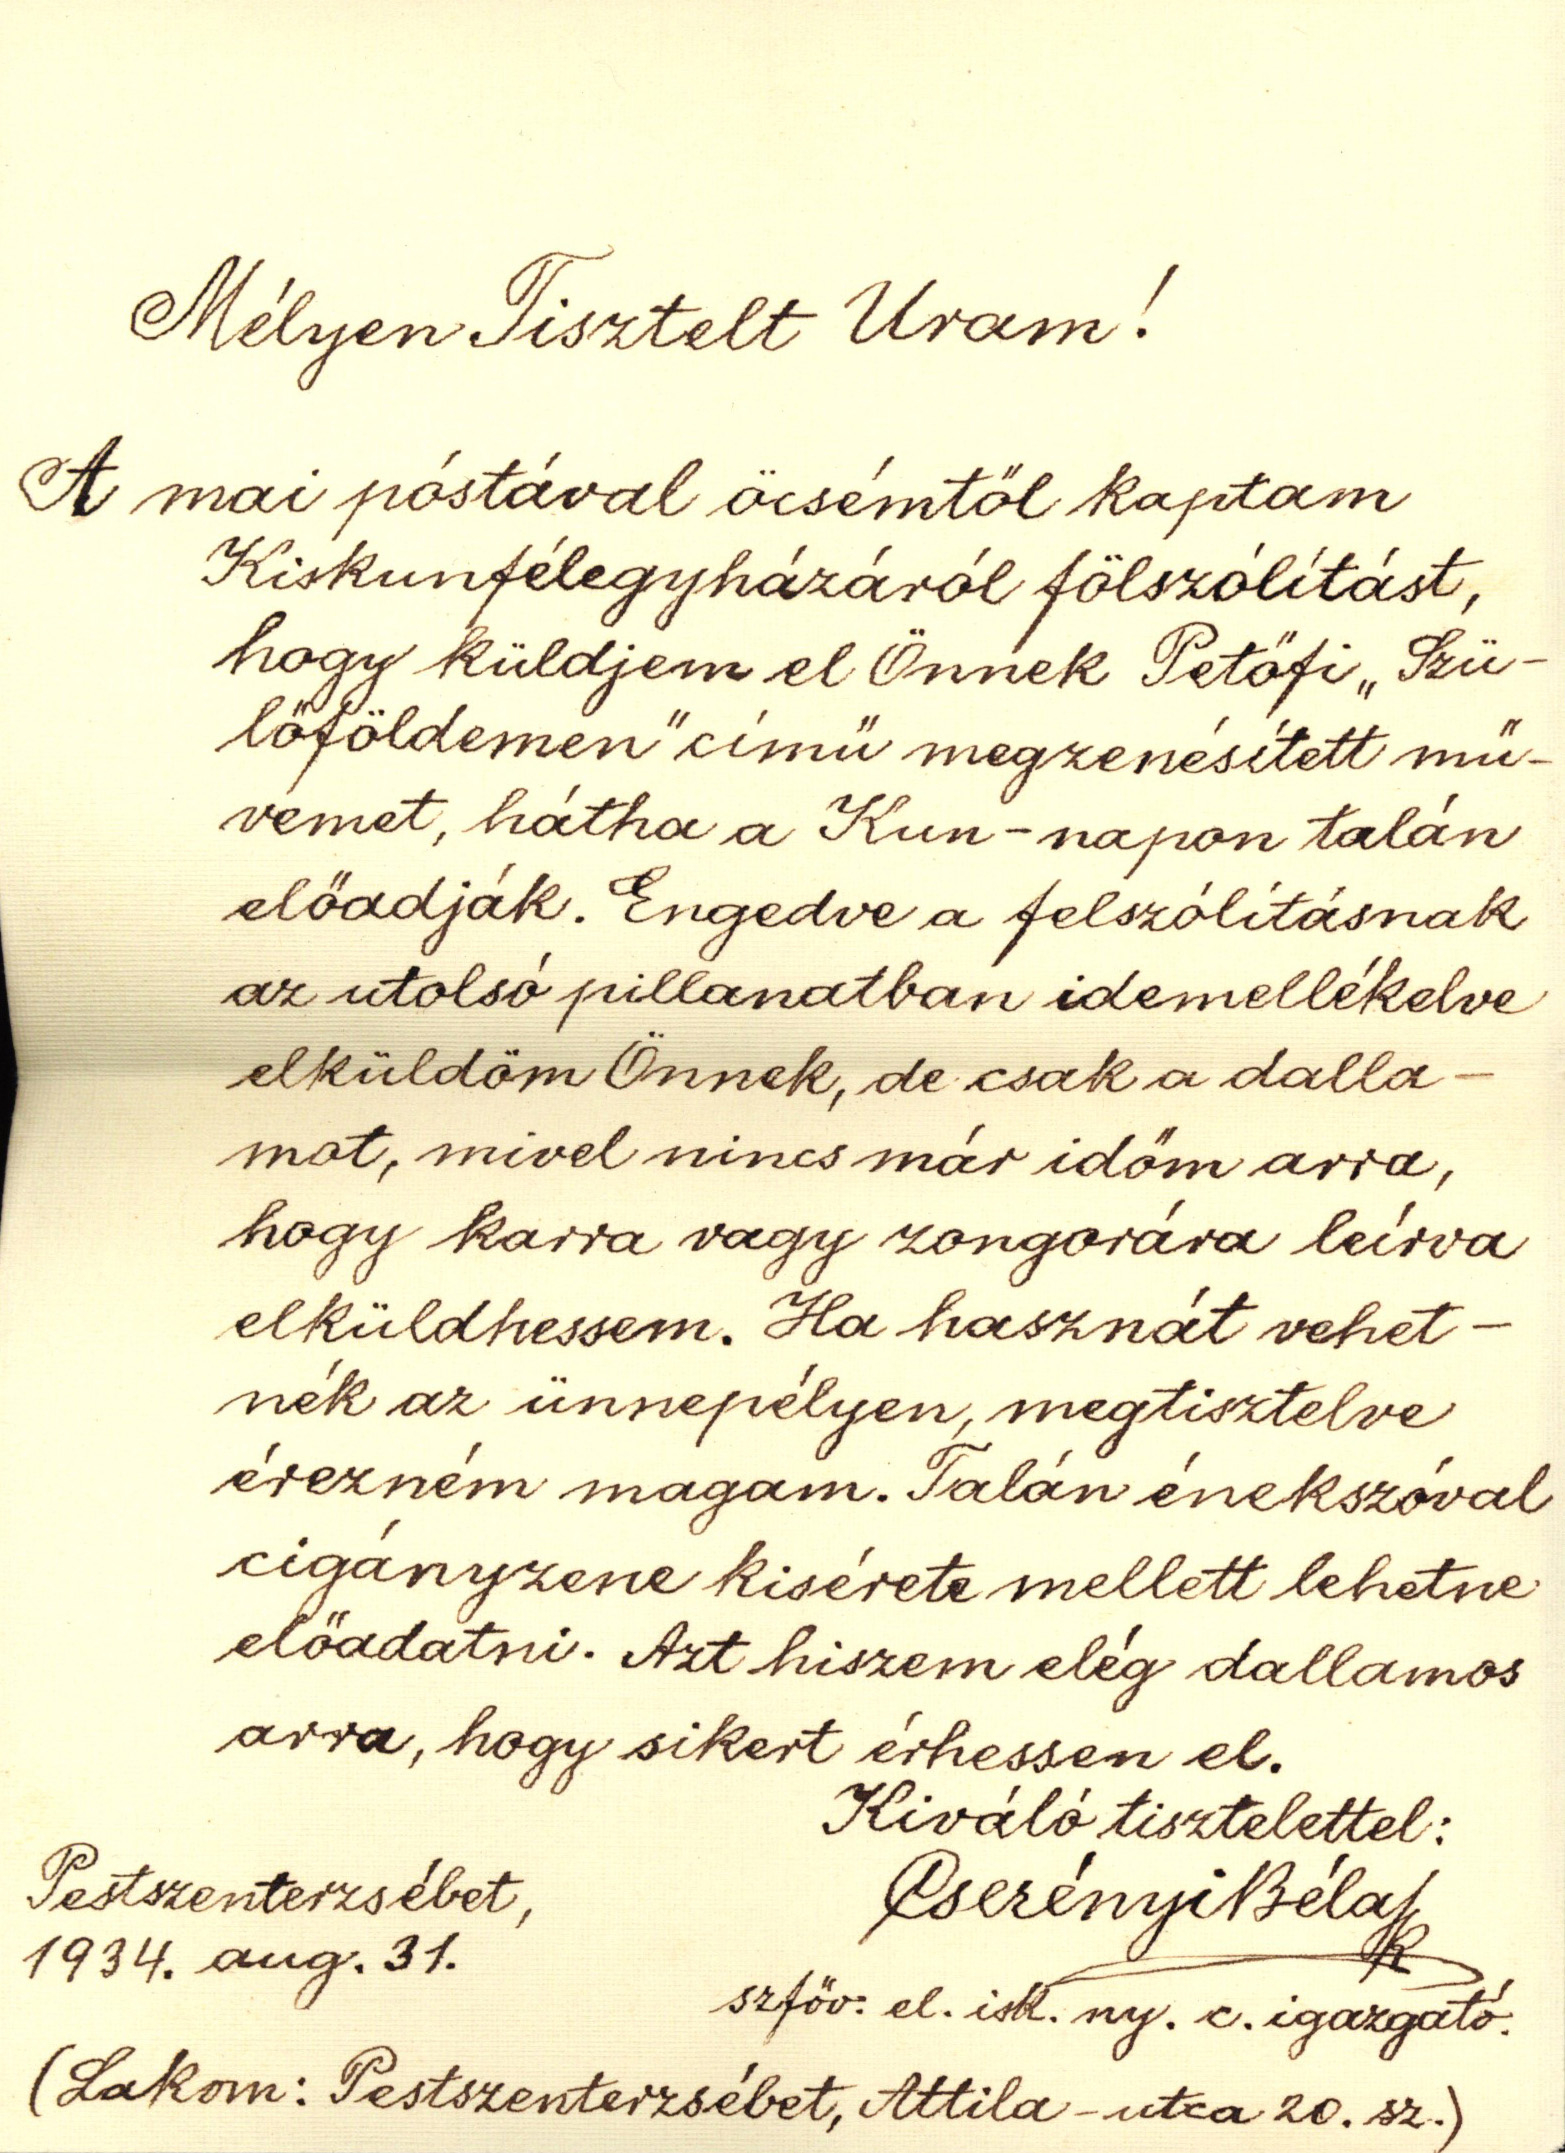 Mélyen Tisztelt Uram!
A mai póstával öcsémtől kaptam
Kiskunfélegyházáról fölszólítást,
hogy küldjem el Önnek Petőfi „Szü-
lőföldemen" című megzenésített mű-
vemet, hátha a Kun-napon talán
előadják. Engedve a felszólításnak
az utolsó pillanatban idemellékelve
elküldöm Önnek, de csak a dalla-
mot, mivel nincs már időm arra,
hogy karra vagy zongorára leírva
elküldhessem. Ha hasznát vehet-
nék az ünnepélyen, megtisztelve
érezném magam. Talán énekszóval
cigányzene kisérete mellett lehetne
előadatni. Azt hiszem elég dallamos
arra, hogy sikert érhessen el.
Kiváló tisztelettel:
Pestszenterzsébet,
Cserényi Béla
1934. aug. 31.
szföv. el. isk. ny. c. igazgató.
(Lakom: Pestszenterzsébet, Attila-utca 20. sz.)